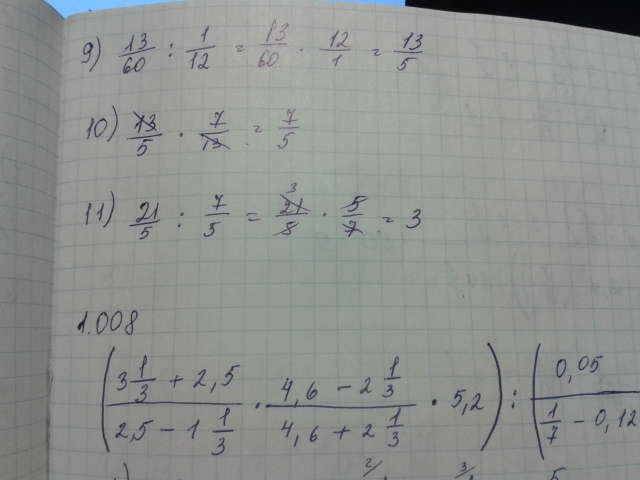 9) 13/60 : 1/12 = 13/60 · 12/1 = 13/5
10) 13/5 · 7/13 = 7/5
11) 21/5 : 7/5 = 21/5 · 5/7 = 3
1.008
((3 1/3 + 2,5)/(2,5 - 1 1/3) · (4,6 - 2 1/3)/(4,6 + 2 1/3) · 5,2) : (0,05/(1/7 - 0,12